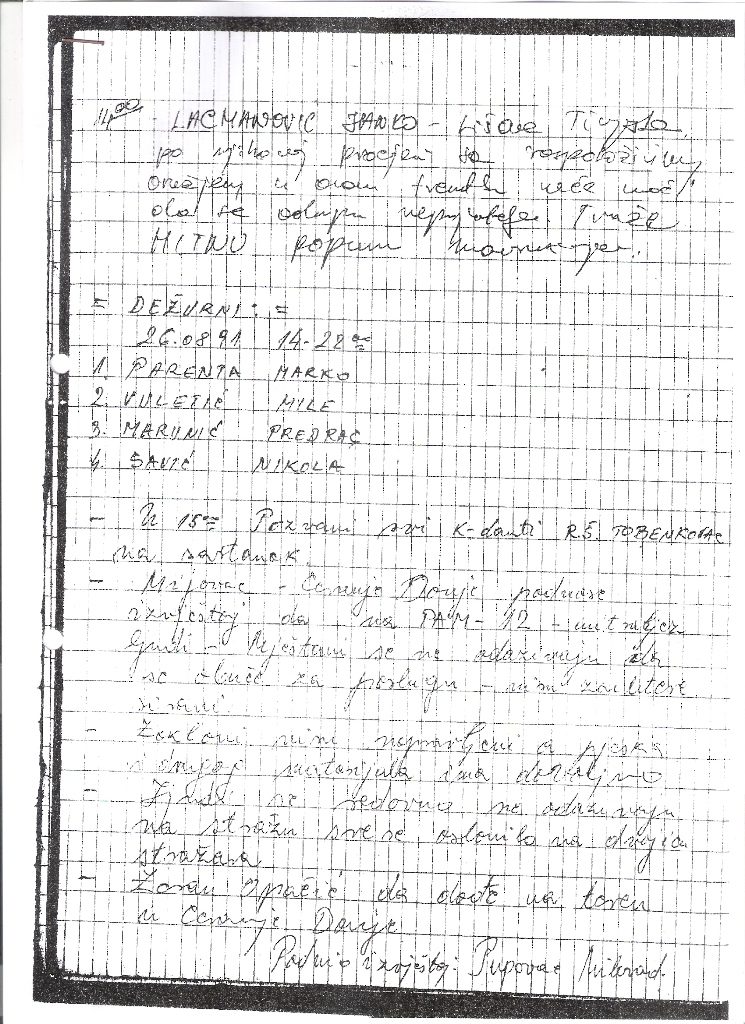 14⁰⁰ - LACMANOVIĆ JANKO - Lišane Tinjske,
po njihovoj procjeni sa raspoloživim
u ovom trenutku neće moći
da se odupru neprijatelju. Traže
HITNU popunu
= DEŽURNI: =
26.08.91 14-22⁰⁰
1. PARENTA MARKO
2. VULETIĆ MILE
3. MARUNIĆ PREDRAG
4. SAVIĆ NIKOLA
- U 15⁰⁰ Pozvani svi k-danti R.Š. DOBENKOVAC
na sastanak.
- Ceranje Donje podnose
izvještaj da na PAM-12 - mitraljezu
- Mještani se ne odazivaju da
se obuče za poslugu - nisu zainteresirani
- Zakloni nisu napravljeni a pjeska
i drugog materijala ima dovoljno
- Ljudi se redovno ne odazivaju
na stražu sve se oslonilo na dvojicu
stražara
- Zoran Opačić da dođe na teren
u Ceranje Donje
Podnio izvještaj: Pupovac Milorad